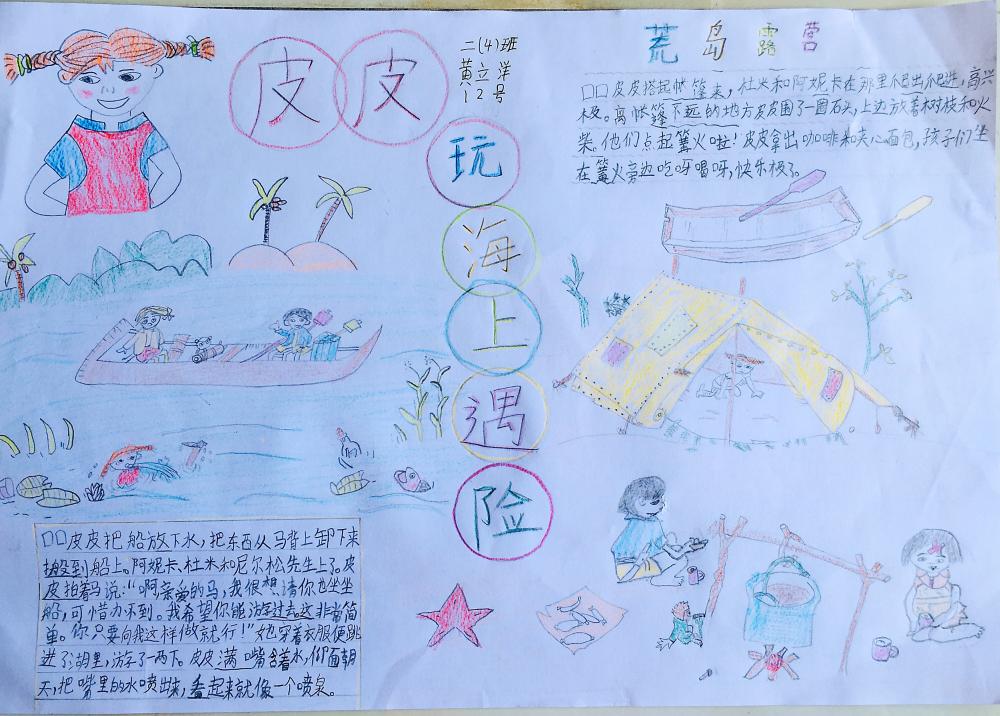 皮皮玩海上遇险
二(4)班
黄立洋
12号
荒岛露营
皮皮搭起帐篷来，杜米和阿妮卡在那里爬出爬进，高兴
极。离帐篷不远的地方皮皮围了一圈石头，上边放着树枝和火
柴。他们点起篝火啦！皮皮拿出咖啡和夹心面包，孩子们坐
在篝火旁边吃呀唱呀，快乐极了。
皮皮把船放下水，把东西从马背上卸下来
搬到船上。阿妮卡、杜米和尼尔松先生上了。皮
皮拍着马说：“啊亲爱的马，我很想请你也坐坐
船，可惜办不到。我希望你能游过去这非常简
单。你只要向我这样做就行！”她穿着衣服便跳
进了湖里，游了一两下。皮皮满嘴含着水，仰面朝
天，把嘴里的水喷出来，看起来就像一个喷泉。